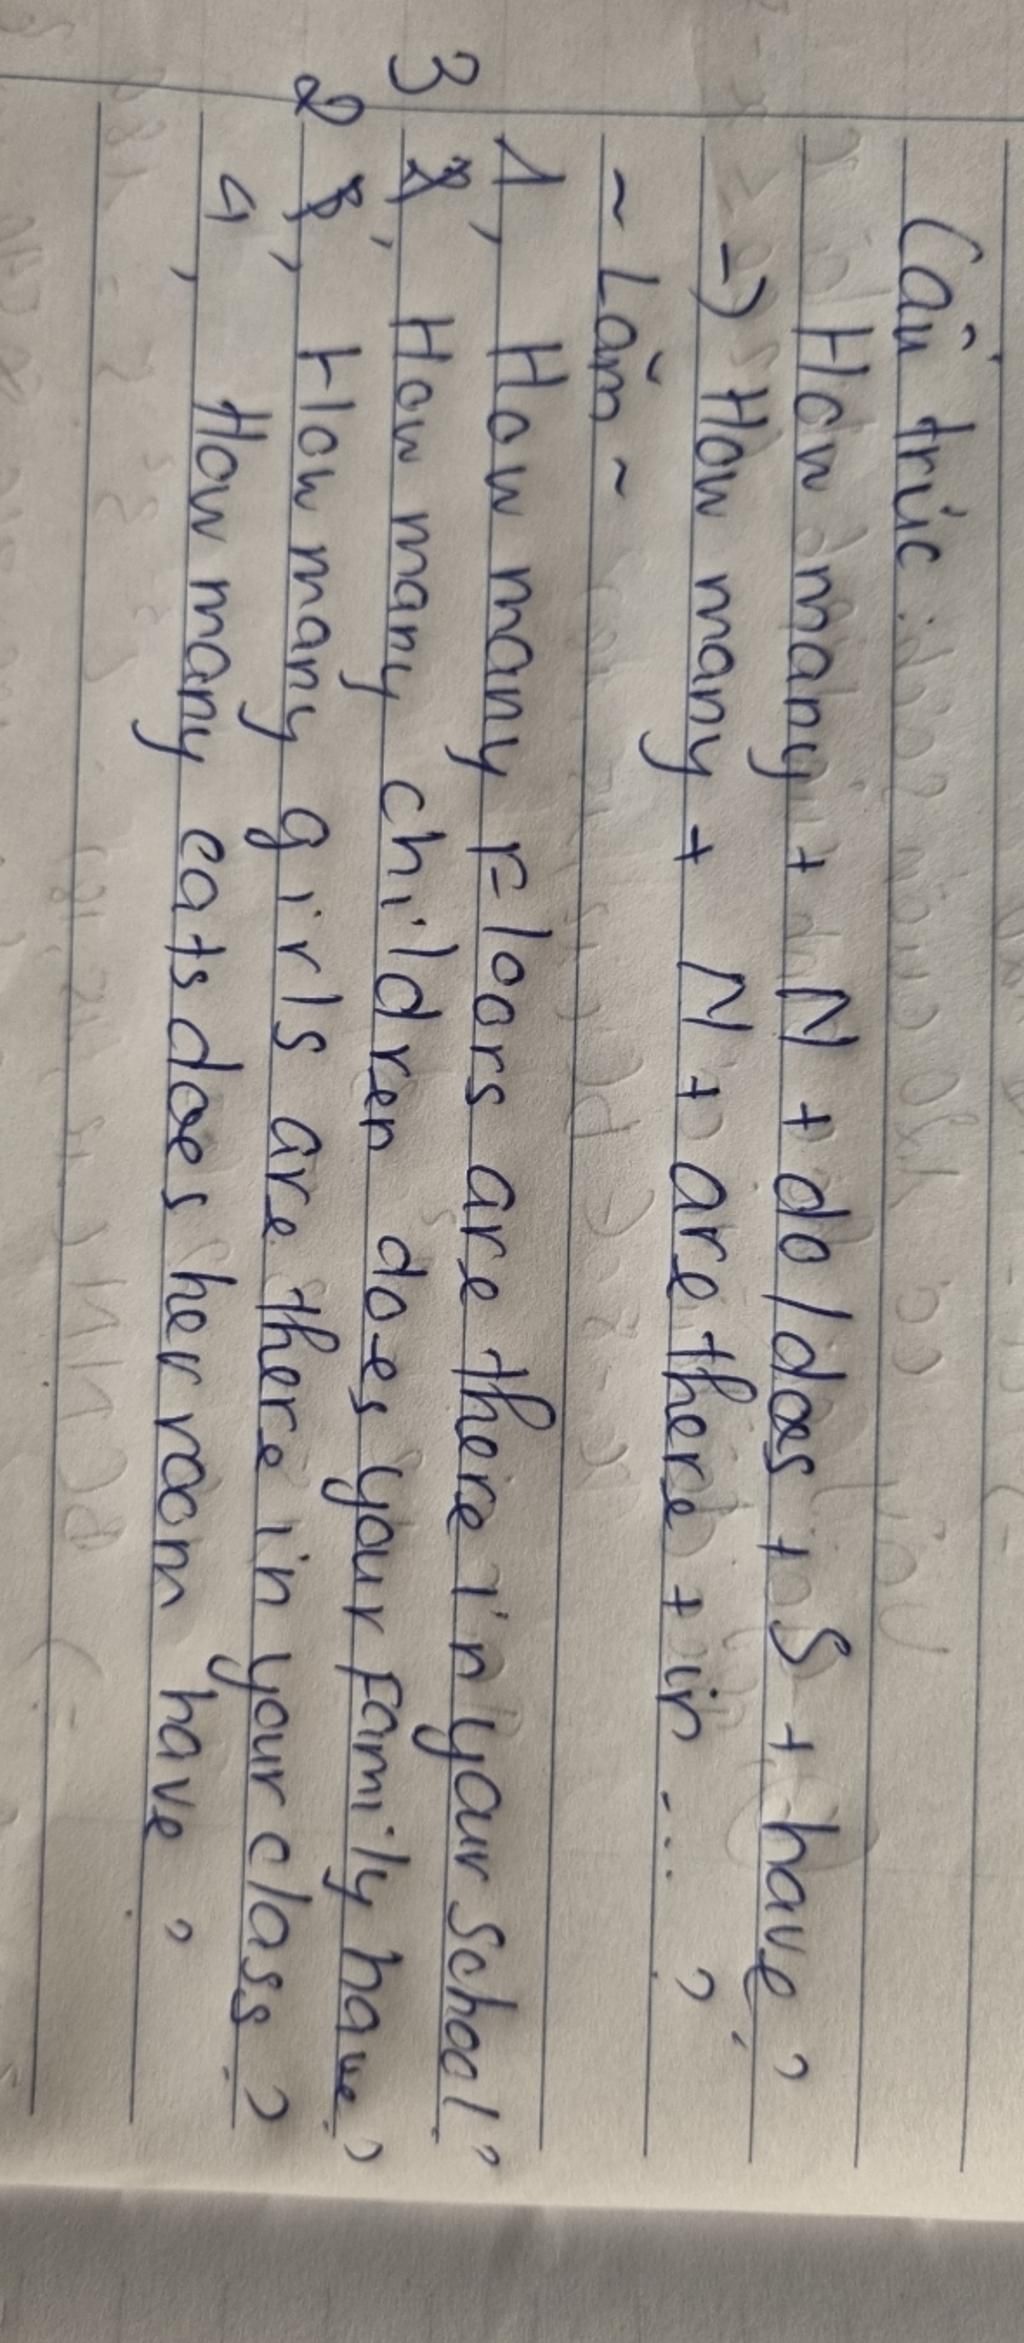 Cấu trúc :
How many + N + do / does + S + have ?
→ How many + N + are there + in .... ?
~ Làm ~
1, How many Floors are there in your school ?
3, How many children does your Family have ?
2, How many girls are there in your class ?
4, How many cats does her room have ?